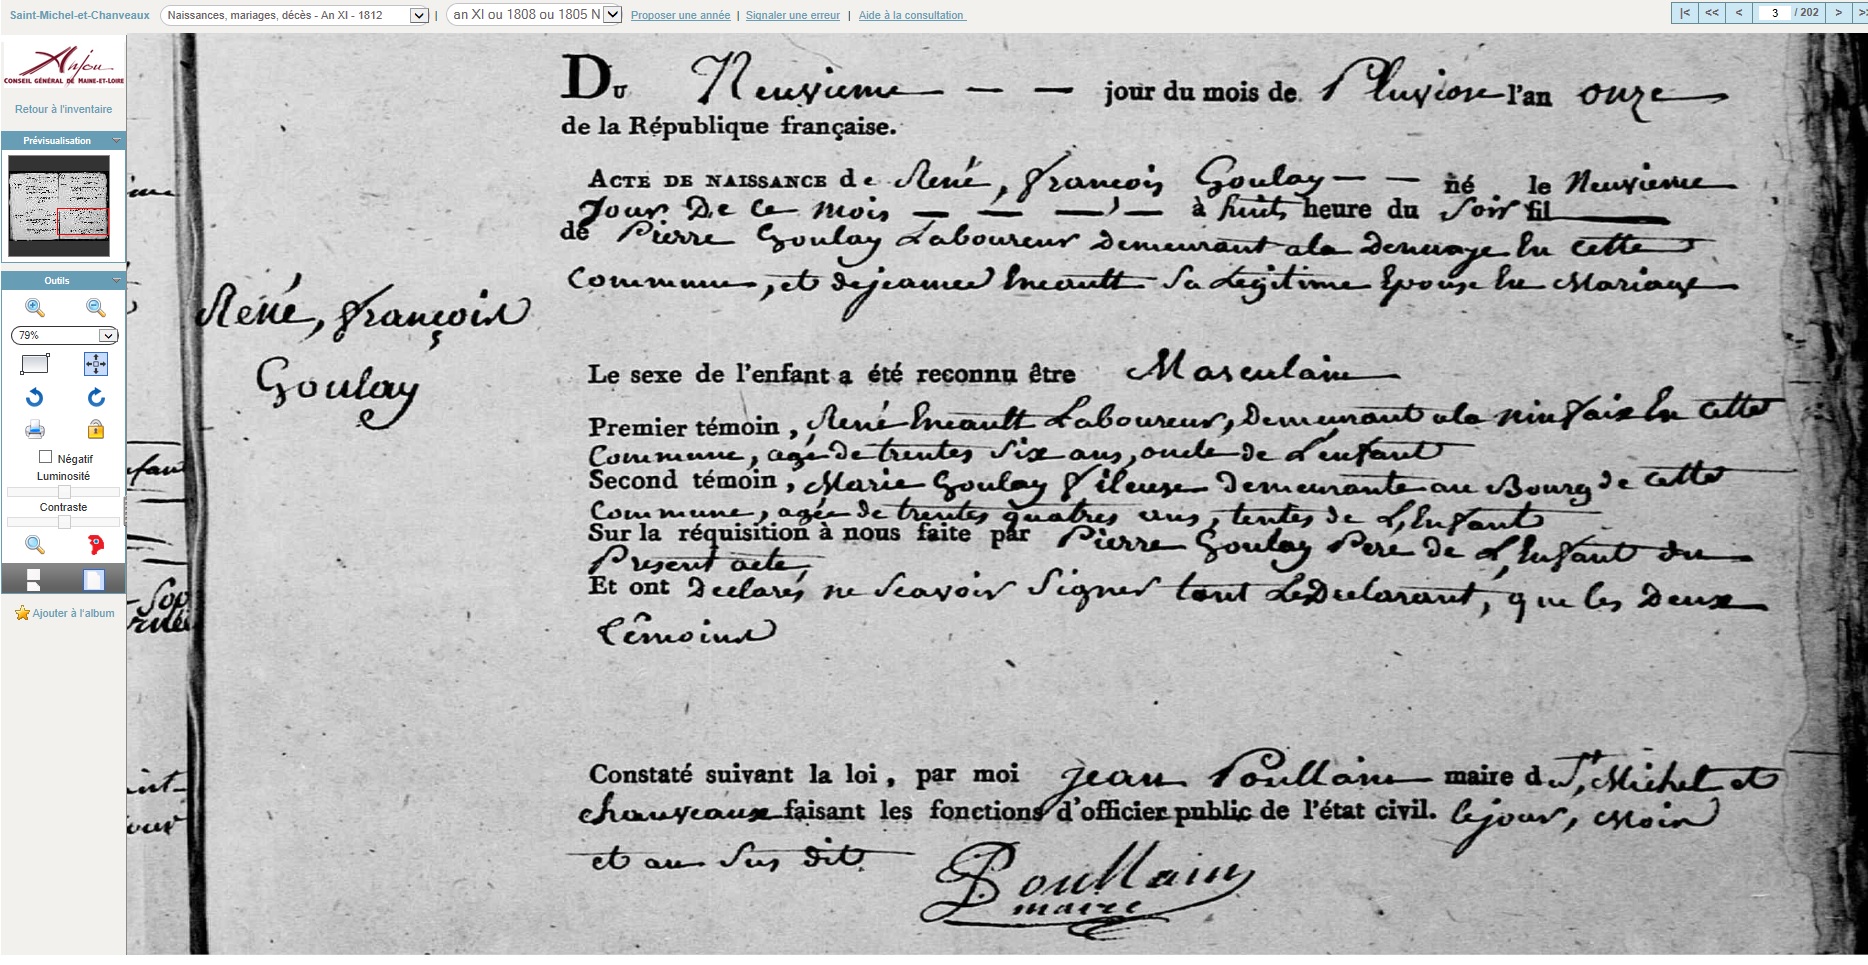 Saint-Michel-et-Chanveaux
Naissances, mariages, décès - An XI - 1812 |
an XI ou 1808 ou 1805 N
Proposer une année | Signaler une erreur | Aide à la consultation
|< << < 3 / 202 > >
Anjou
CONSEIL GÉNÉRAL DE MAINE-ET-LOIRE
Retour à l'inventaire
Prévisualisation
Outils
79%
Négatif
Luminosité
Contraste
Ajouter à l'album
René, françois
Goulay
DU Neuvieme — — jour du mois de Pluviose l'an onze
de la République française.
ACTE DE NAISSANCE de René, françois Goulay — — né le Neuvieme
Jour De ce mois — — — — à huit heure du Soir fil
de Pierre Goulay Laboureur demeurant a la En cette
Commune, et de jeanne heault Sa Legitime Epouse En Mariage
Le sexe de l'enfant a été reconnu être Masculain
Premier témoin, René heault Laboureur, Demeurant a la En cette
Commune, agé de trentes Six ans, oncle de L'enfant
Second témoin, Marie Goulay fileuse demeurante au Bourg de cette
Commune, agée de trentes quatres ans, tentes de L'Enfant
Sur la réquisition à nous faite par Pierre Goulay Pere de L'Enfant du
Present acte,
Et ont Declarés ne Scavoir Signer tant Le Declarant, que les deux
témoins
Constaté suivant la loi, par moi jean Poullain maire d St, Michel et
chauveaux faisant les fonctions d'officier public de l'état civil. le jour, Mois
et an Sus dit.
Poullain
maire